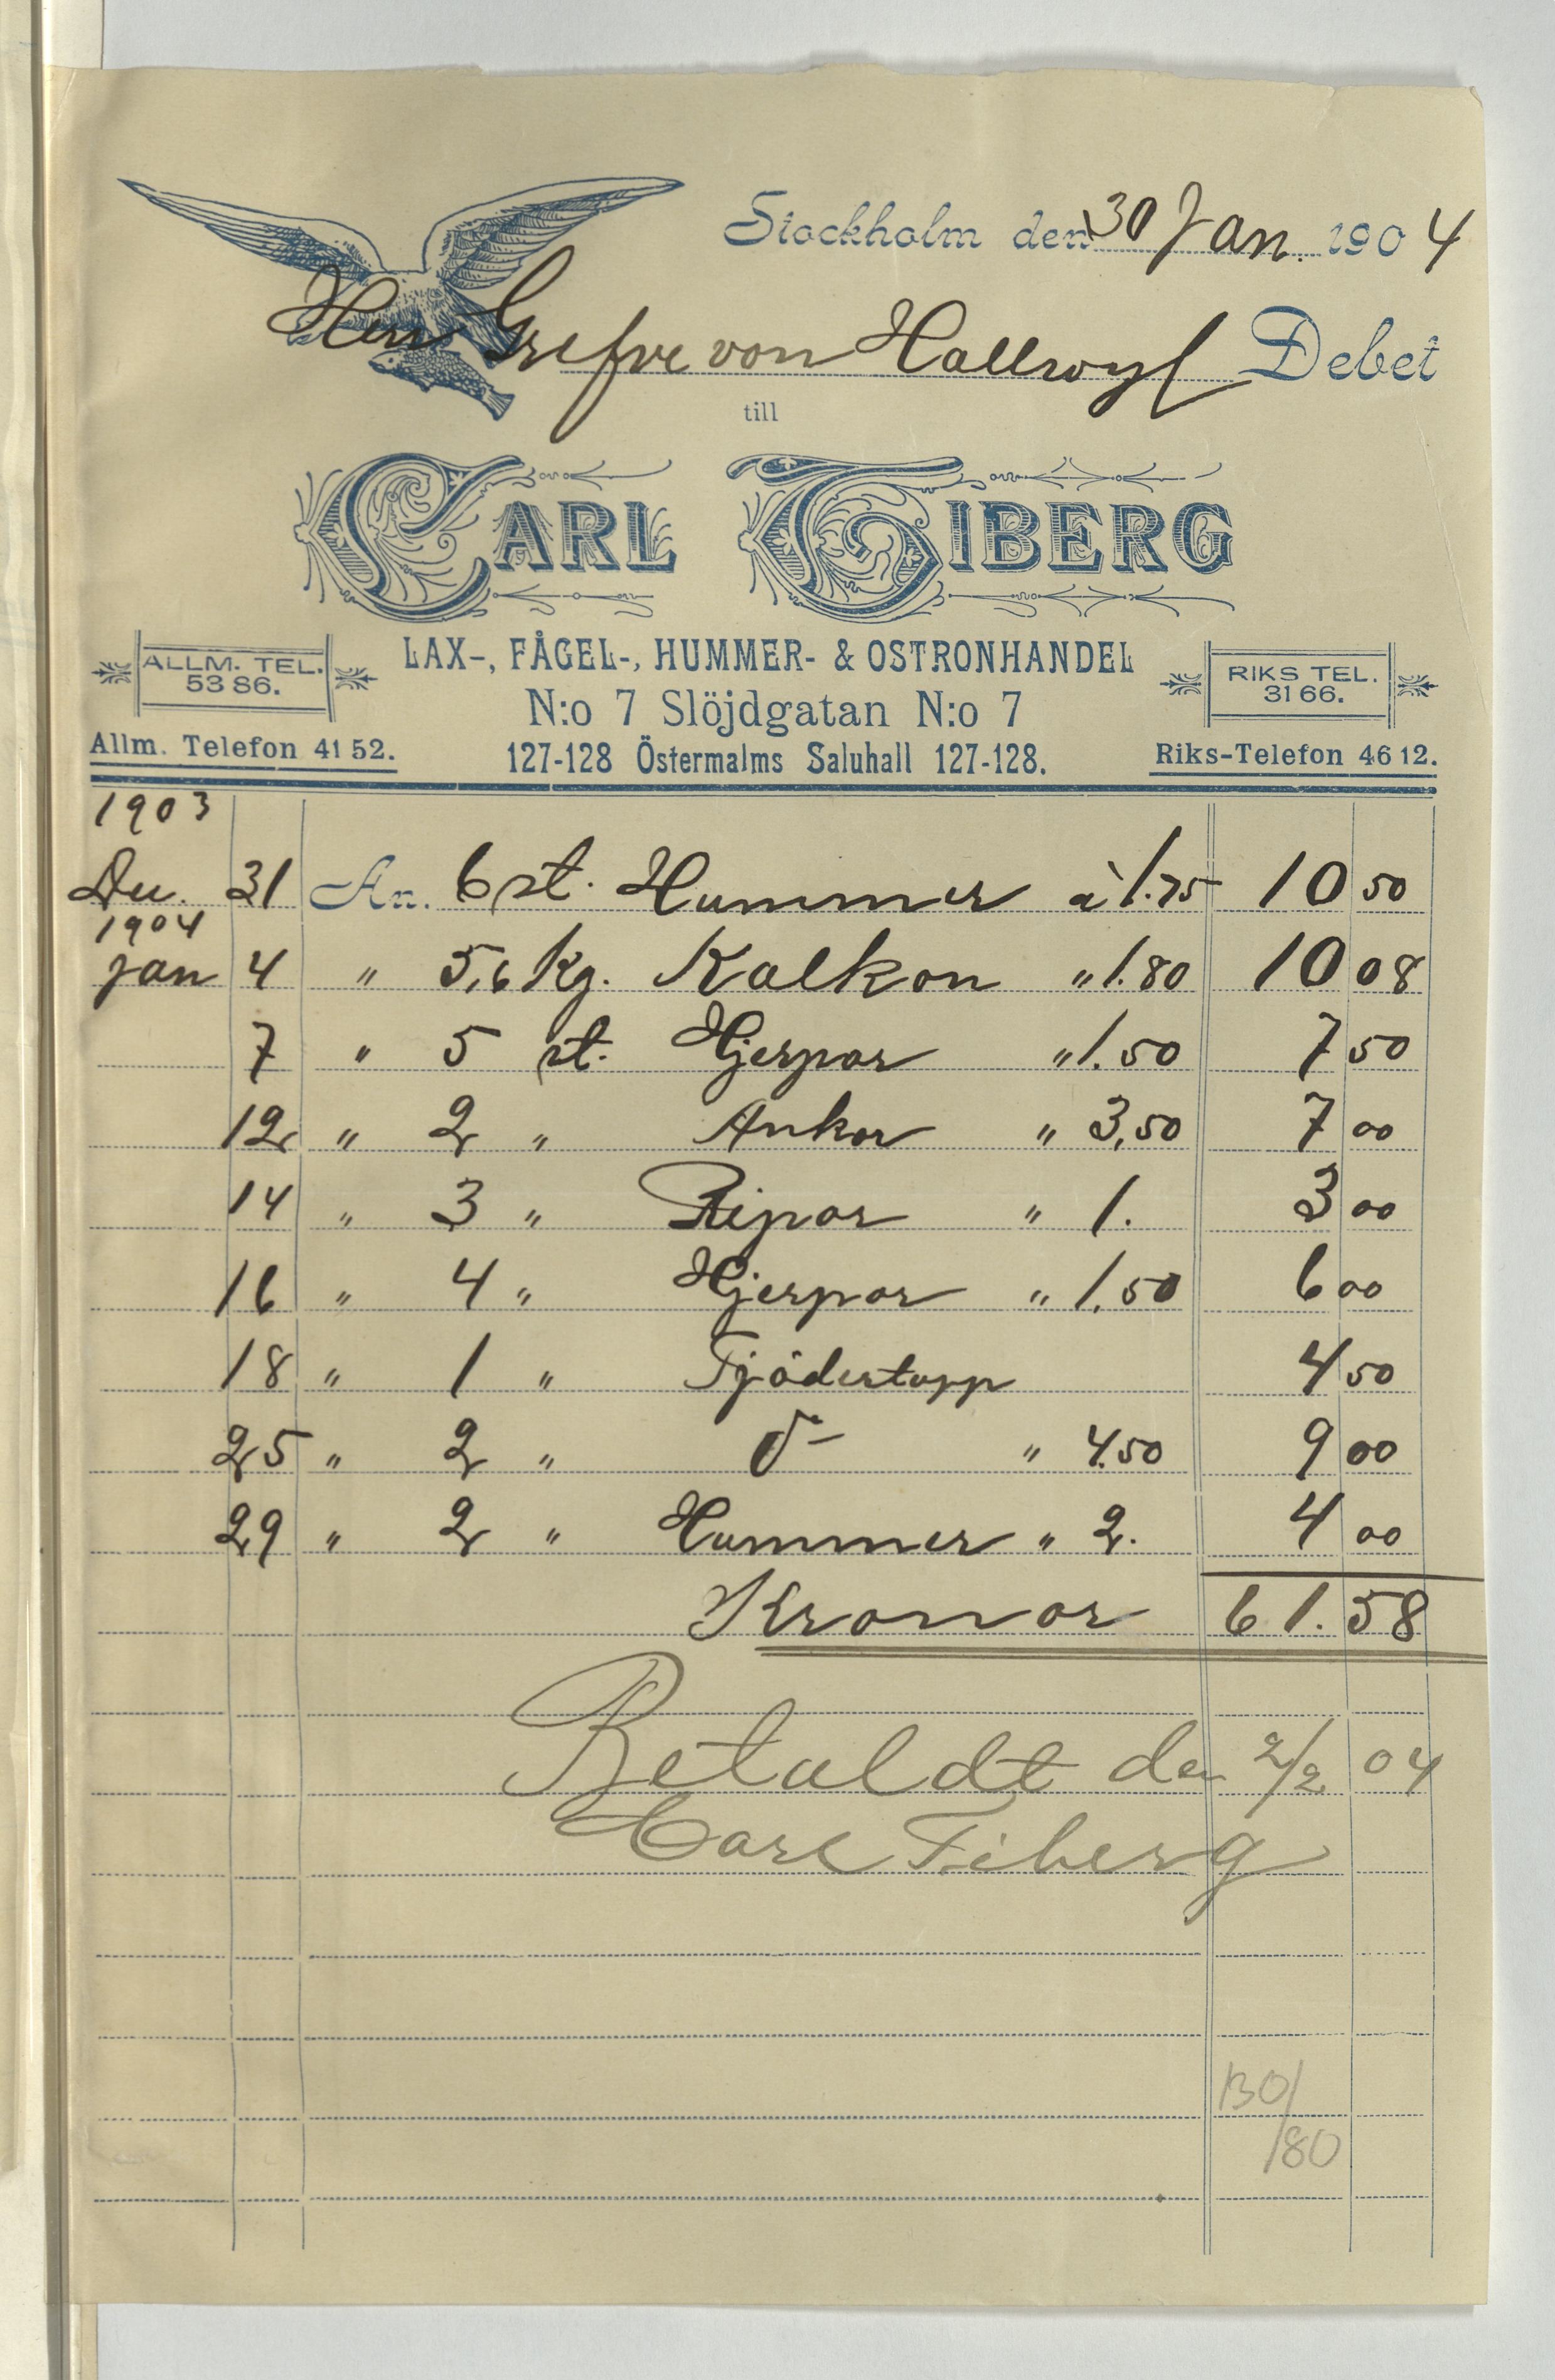 Stockholm den 30 Jan. 1904
Herr Grefve von Hallwyl Debet
till
CARL TIBERG
LAX-, FÅGEL-, HUMMER- & OSTRONHANDEL
ALLM. TEL.
5386.
RIKS TEL.
3166.
N:o 7 Slöjdgatan N:o 7
Allm. Telefon 4152.
127-128 Östermalms Saluhall 127-128.
Riks-Telefon 4612.
1903
Dec. 31 An. 6 st. Hummer à 1.75 10 50
1904
Jan 4 " 5,6 Kg. Kalkon " 1.80 10 08
7 " 5 st. Hjerpar " 1.50 7 50
12 " 2 " Ankor " 3,50 7 00
14 " 3 " Ripor " 1. 3 00
16 " 4 " Hjerpar " 1.50 6 00
18 " 1 " Tjädertupp 4 50
25 " 2 " d:o " 4.50 9 00
29 " 2 " Hummer " 2. 4 00
Kronor 61.58
Betaldt den 2/2 04
Carl Tiberg
130/
/80